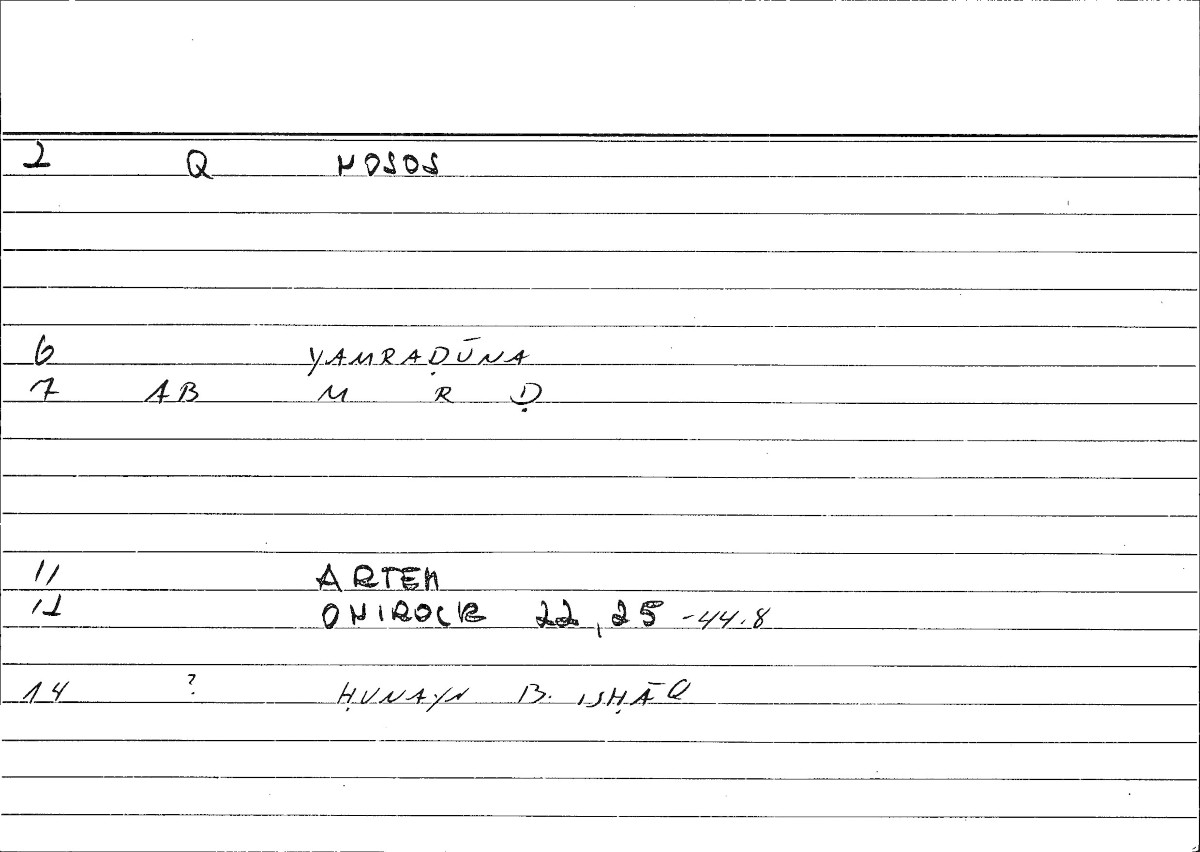 2 Q NOSOS
6 YAMRAḌŪNA
7 AB M R Ḍ
11 ARTEM
12 ONIROCR 22,25 -44.8
14 ? ḤUNAYN B. ISḤĀQ